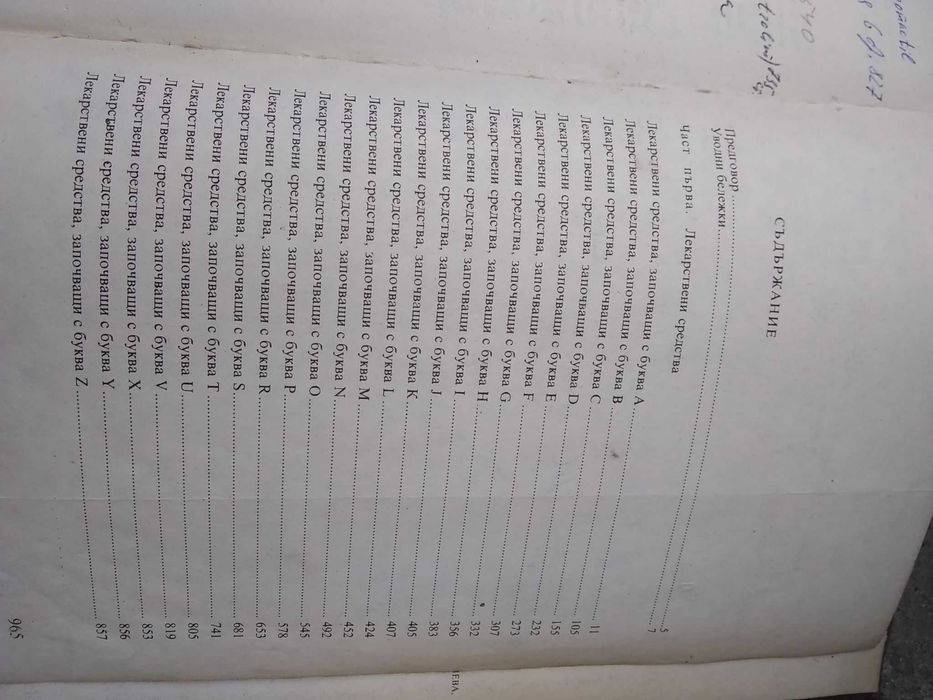 СЪДЪРЖАНИЕ
Предговор ........ 5
Уводни бележки ........ 7
Част първа. Лекарствени средства
Лекарствени средства, започващи с буква A ........ 11
Лекарствени средства, започващи с буква B ........ 105
Лекарствени средства, започващи с буква C ........ 155
Лекарствени средства, започващи с буква D ........ 232
Лекарствени средства, започващи с буква E ........ 273
Лекарствени средства, започващи с буква F ........ 307
Лекарствени средства, започващи с буква G ........ 332
Лекарствени средства, започващи с буква H ........ 356
Лекарствени средства, започващи с буква I ........ 383
Лекарствени средства, започващи с буква J ........ 405
Лекарствени средства, започващи с буква K ........ 407
Лекарствени средства, започващи с буква L ........ 424
Лекарствени средства, започващи с буква M ........ 452
Лекарствени средства, започващи с буква N ........ 492
Лекарствени средства, започващи с буква O ........ 545
Лекарствени средства, започващи с буква P ........ 578
Лекарствени средства, започващи с буква R ........ 653
Лекарствени средства, започващи с буква S ........ 681
Лекарствени средства, започващи с буква T ........ 741
Лекарствени средства, започващи с буква U ........ 805
Лекарствени средства, започващи с буква V ........ 819
Лекарствени средства, започващи с буква X ........ 853
Лекарствени средства, започващи с буква Y ........ 856
Лекарствени средства, започващи с буква Z ........ 857
965